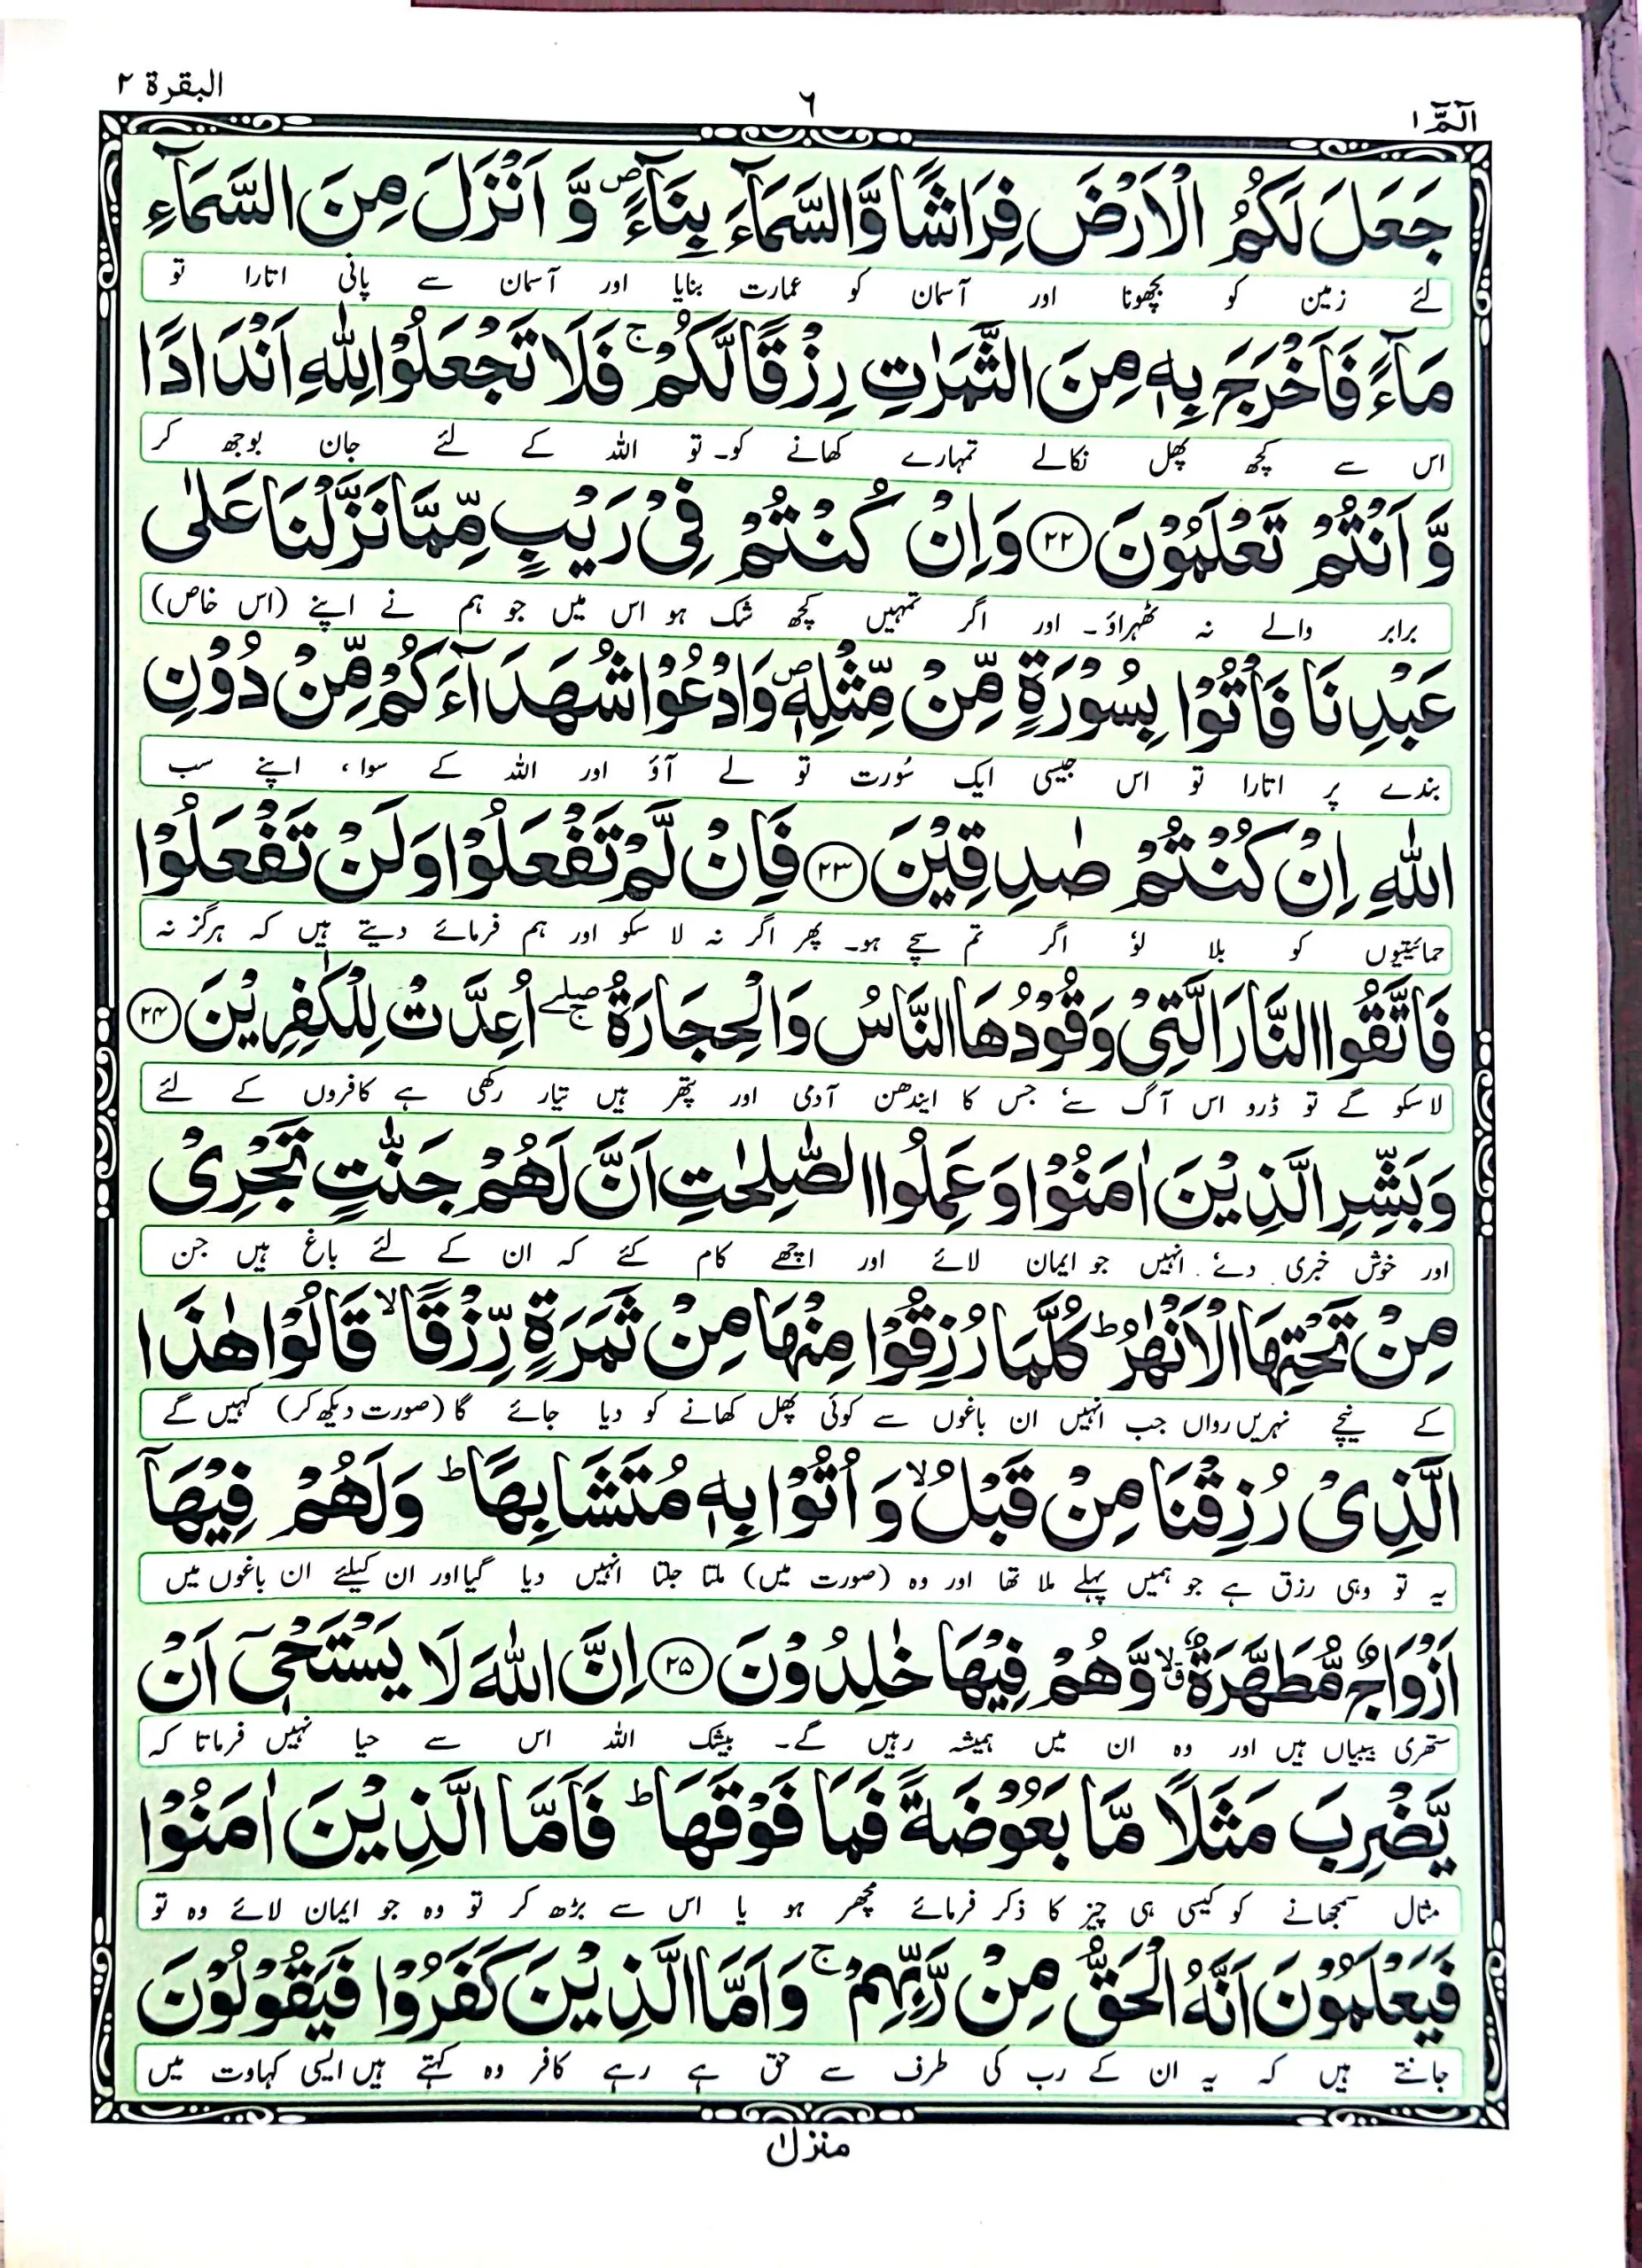 الٓمّٓ ۱
٦
البقرة ۲
جَعَلَ لَكُمُ الْاَرْضَ فِرَاشًا وَّالسَّمَآءَ بِنَآءً ۪ وَّ اَنْزَلَ مِنَ السَّمَآءِ
لئے زمین کو بچھونا اور آسمان کو عمارت بنایا اور آسمان سے پانی اتارا تو
مَآءً فَاَخْرَجَ بِهٖ مِنَ الثَّمَرٰتِ رِزْقًا لَّكُمْ ۚ فَلَا تَجْعَلُوْا لِلّٰهِ اَنْدَادًا
اس سے کچھ پھل نکالے تمہارے کھانے کو۔ تو اللہ کے لئے جان بوجھ کر
وَّ اَنْتُمْ تَعْلَمُوْنَ ﴿۲۲﴾ وَاِنْ كُنْتُمْ فِیْ رَیْبٍ مِّمَّا نَزَّلْنَا عَلٰی
برابر والے نہ ٹھہراؤ۔ اور اگر تمہیں کچھ شک ہو اس میں جو ہم نے اپنے (اس خاص)
عَبْدِنَا فَاْتُوْا بِسُوْرَةٍ مِّنْ مِّثْلِهٖ ۪ وَادْعُوْا شُهَدَآءَكُمْ مِّنْ دُوْنِ
بندے پر اتارا تو اس جیسی ایک سُورت تو لے آؤ اور اللہ کے سوا، اپنے سب
اللّٰهِ اِنْ كُنْتُمْ صٰدِقِیْنَ ﴿۲۳﴾ فَاِنْ لَّمْ تَفْعَلُوْا وَلَنْ تَفْعَلُوْا
حمائیتیوں کو بلا لوٗ اگر تم سچے ہو۔ پھر اگر نہ لا سکو اور ہم فرمائے دیتے ہیں کہ ہرگز نہ
فَاتَّقُوا النَّارَ الَّتِیْ وَقُوْدُهَا النَّاسُ وَالْحِجَارَةُ ۖۚ اُعِدَّتْ لِلْكٰفِرِیْنَ ﴿۲۴﴾
لا سکو گے تو ڈرو اس آگ سے جس کا ایندھن آدمی اور پتھر ہیں تیار رکھی ہے کافروں کے لئے
وَبَشِّرِ الَّذِیْنَ اٰمَنُوْا وَعَمِلُوا الصّٰلِحٰتِ اَنَّ لَهُمْ جَنّٰتٍ تَجْرِیْ
اور خوش خبری دے انہیں جو ایمان لائے اور اچھے کام کئے کہ ان کے لئے باغ ہیں جن
مِنْ تَحْتِهَا الْاَنْهٰرُ ؕ كُلَّمَا رُزِقُوْا مِنْهَا مِنْ ثَمَرَةٍ رِّزْقًا ۙ قَالُوْا هٰذَا
کے نیچے نہریں رواں جب انہیں ان باغوں سے کوئی پھل کھانے کو دیا جائے گا (صورت دیکھ کر) کہیں گے
الَّذِیْ رُزِقْنَا مِنْ قَبْلُ ۙ وَ اُتُوْا بِهٖ مُتَشَابِهًا ؕ وَلَهُمْ فِیْهَاۤ
یہ تو وہی رزق ہے جو ہمیں پہلے ملا تھا اور وہ (صورت میں) ملتا جلتا انہیں دیا گیا اور ان کیلئے ان باغوں میں
اَزْوَاجٌ مُّطَهَّرَةٌ ۙۗ وَّهُمْ فِیْهَا خٰلِدُوْنَ ﴿۲۵﴾ اِنَّ اللّٰهَ لَا یَسْتَحْیٖۤ اَنْ
ستھری بیبیاں ہیں اور وہ ان میں ہمیشہ رہیں گے۔ بیشک اللہ اس سے حیا نہیں فرماتا کہ
یَّضْرِبَ مَثَلًا مَّا بَعُوْضَةً فَمَا فَوْقَهَا ؕ فَاَمَّا الَّذِیْنَ اٰمَنُوْا
مثال سمجھانے کو کیسی ہی چیز کا ذکر فرمائے مچھر ہو یا اس سے بڑھ کر تو وہ جو ایمان لائے وہ تو
فَیَعْلَمُوْنَ اَنَّهُ الْحَقُّ مِنْ رَّبِّهِمْ ۚ وَاَمَّا الَّذِیْنَ كَفَرُوْا فَیَقُوْلُوْنَ
جانتے ہیں کہ یہ ان کے رب کی طرف سے حق ہے رہے کافر وہ کہتے ہیں ایسی کہاوت میں
منزل ۱